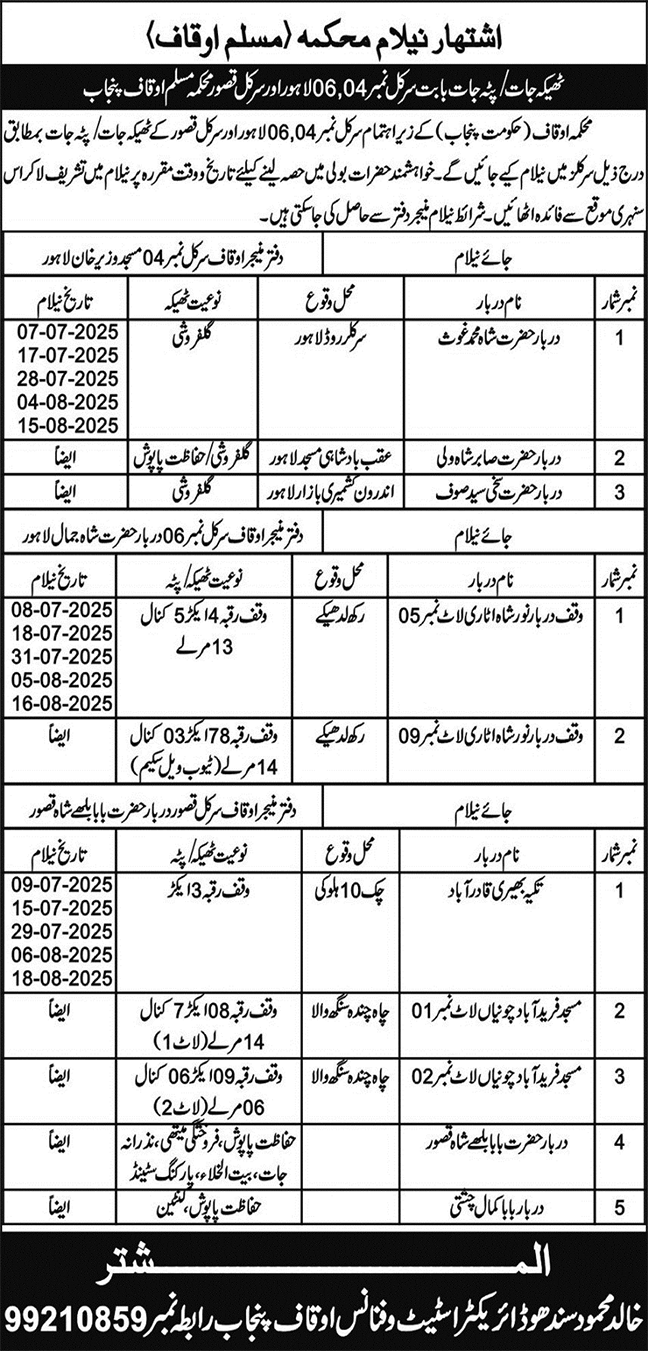 اشتهار نیلام محکمہ (مسلم اوقاف)
ٹھیکہ جات/پٹہ جات بابت سرکل نمبر 06,04 لاہور اور سرکل قصور محکمہ مسلم اوقاف پنجاب
محکمہ اوقاف (حکومت پنجاب) کے زیر اہتمام سرکل نمبر 06,04 لاہور اور سرکل قصور کے ٹھیکہ جات/پٹہ جات بمطابق
درج ذیل سرکلز میں نیلام کیے جائیں گے۔ خواہشمند حضرات بولی میں حصہ لینے کیلئے تاریخ و وقت مقررہ پر نیلام میں تشریف لا کر اس
سنہری موقع سے فائدہ اٹھائیں۔ شرائط نیلام منیجر دفتر سے حاصل کی جا سکتی ہیں۔
جائے نیلام دفتر منیجر اوقاف سرکل نمبر 04 مسجد وزیر خان لاہور
نمبر شمار نام دربار محل وقوع نوعیت ٹھیکہ تاریخ نیلام
1 دربار حضرت شاہ محمد غوث سرکلر روڈ لاہور گلفروشی 07-07-2025
17-07-2025
28-07-2025
04-08-2025
15-08-2025
2 دربار حضرت صابر شاہ ولی عقب بادشاہی مسجد لاہور گلفروشی/حفاظت پاپوش ایضاً
3 دربار حضرت سخی سید صوف اندرون کشمیری بازار لاہور گلفروشی ایضاً
جائے نیلام دفتر منیجر اوقاف سرکل نمبر 06 دربار حضرت شاہ جمال لاہور
نمبر شمار نام دربار محل وقوع نوعیت ٹھیکہ/پٹہ تاریخ نیلام
1 وقف دربار نور شاہ اٹاری لاٹ نمبر 05 رکھ لدھیکے وقف رقبہ 4 ایکڑ 5 کنال 08-07-2025
13 مرلے 18-07-2025
31-07-2025
05-08-2025
16-08-2025
2 وقف دربار نور شاہ اٹاری لاٹ نمبر 09 رکھ لدھیکے وقف رقبہ 78 ایکڑ 03 کنال ایضاً
14 مرلے (ٹیوب ویل سکیم)
جائے نیلام دفتر منیجر اوقاف سرکل قصور دربار حضرت بابا بلھے شاہ قصور
نمبر شمار نام دربار محل وقوع نوعیت ٹھیکہ/پٹہ تاریخ نیلام
1 تکیہ بھیری قادر آباد چک 10 ہلوکی وقف رقبہ 3 ایکڑ 09-07-2025
15-07-2025
29-07-2025
06-08-2025
18-08-2025
2 مسجد فرید آباد چونیاں لاٹ نمبر 01 چاہ چندہ سنگھ والا وقف رقبہ 08 ایکڑ 7 کنال ایضاً
14 مرلے (لاٹ 1)
3 مسجد فرید آباد چونیاں لاٹ نمبر 02 چاہ چندہ سنگھ والا وقف رقبہ 09 ایکڑ 06 کنال ایضاً
06 مرلے (لاٹ 2)
4 دربار حضرت بابا بلھے شاہ قصور حفاظت پاپوش، فروختگی میتھی، نذرانہ ایضاً
جات، بیت الخلاء، پارکنگ سٹینڈ
5 دربار بابا کمال چشتی حفاظت پاپوش، کنٹین ایضاً
المشتر
خالد محمود سندھو ڈائریکٹر اسٹیٹ و فنانس اوقاف پنجاب رابطہ نمبر 99210859